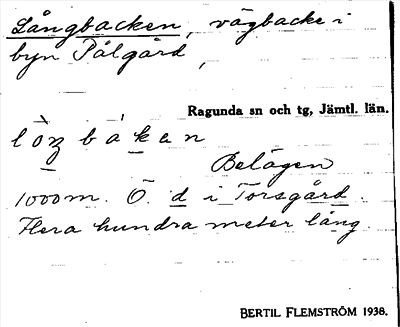 Långbacken, vägbacke i
byn Pålgård,
Ragunda sn och tg, Jämtl. län.
Belägen
1000 m. Ö. d i Torsgård.
Flera hundra meter lång.
BERTIL FLEMSTRÖM 1938.